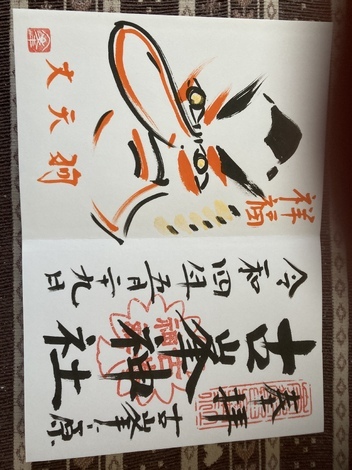 奉拝
古峯ヶ原
古峯神社
令和四年五月二十九日
祥福